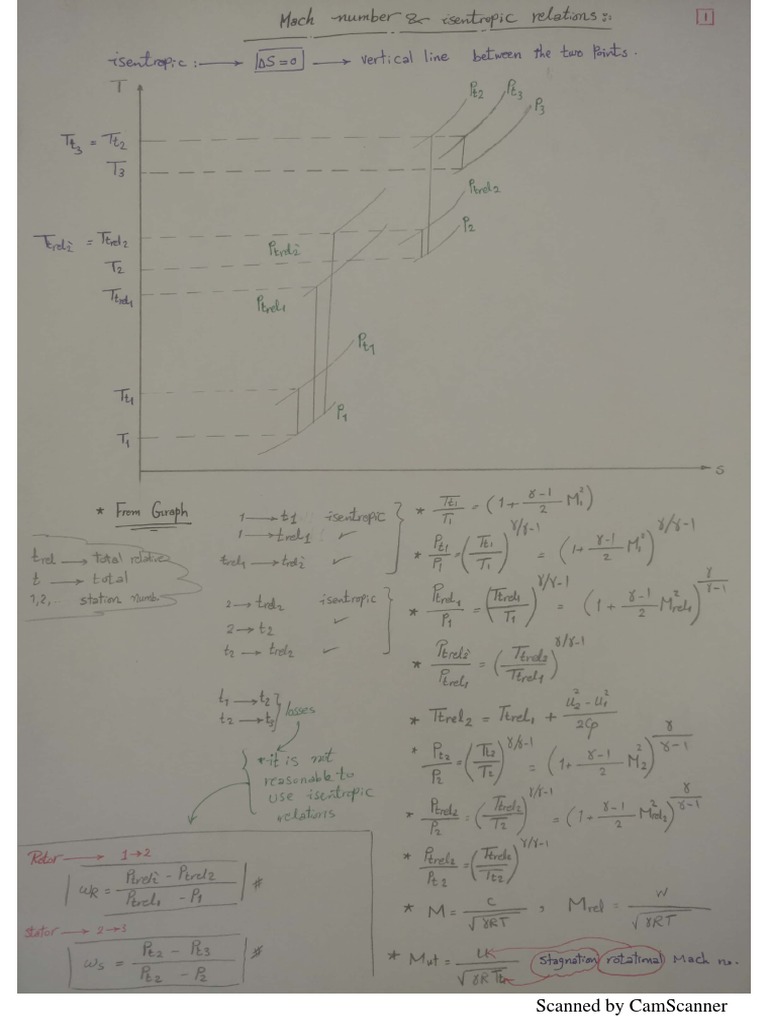 Mach number & isentropic relations :-
1
isentropic :→ ΔS=0 → vertical line between the two points.
T
Pt2
Pt3
P3
Tt3 = Tt2
T3
Ptrel2
P2
Ttrel2̄ = Ttrel2
Ptrel2̄
T2
Ttrel1
Ptrel1
Pt1
Tt1
P1
T1
S
* From Graph
trel → total relative
t → total
1,2,.. station numb.
1 → t1 isentropic
1 → trel1 ✓
trel1 → trel2̄ ✓
2 → trel2 isentropic
2 → t2 ✓
t2 → trel2 ✓
t1 → t2
t2 → t3
losses
* it is not
reasonable to
use isentropic
relations
* Tt1/T1 = (1 + γ-1/2 M1²)
* Pt1/P1 = (Tt1/T1)^γ/γ-1 = (1 + γ-1/2 M1²)^γ/γ-1
* Ptrel1/P1 = (Ttrel1/T1)^γ/γ-1 = (1 + γ-1/2 M²rel1)^γ/γ-1
* Ptrel2̄/Ptrel1 = (Ttrel2/Ttrel1)^γ/γ-1
* Ttrel2 = Ttrel1 + u2² - u1²/2Cp
* Pt2/P2 = (Tt2/T2)^γ/γ-1 = (1 + γ-1/2 M2²)^γ/γ-1
* Ptrel2/P2 = (Ttrel2/T2)^γ/γ-1 = (1 + γ-1/2 M²rel2)^γ/γ-1
* Ptrel2/Pt2 = (Ttrel2/Tt2)^γ/γ-1
* M = C/√γRT , Mrel = W/√γRT
* Mut = u/√γRTt stagnation rotational Mach no.
Rotor → 1→2
ωR = Ptrel2̄ - Ptrel2/Ptrel1 - P1 #
stator → 2→3
ωs = Pt2 - Pt3/Pt2 - P2 #
Scanned by CamScanner